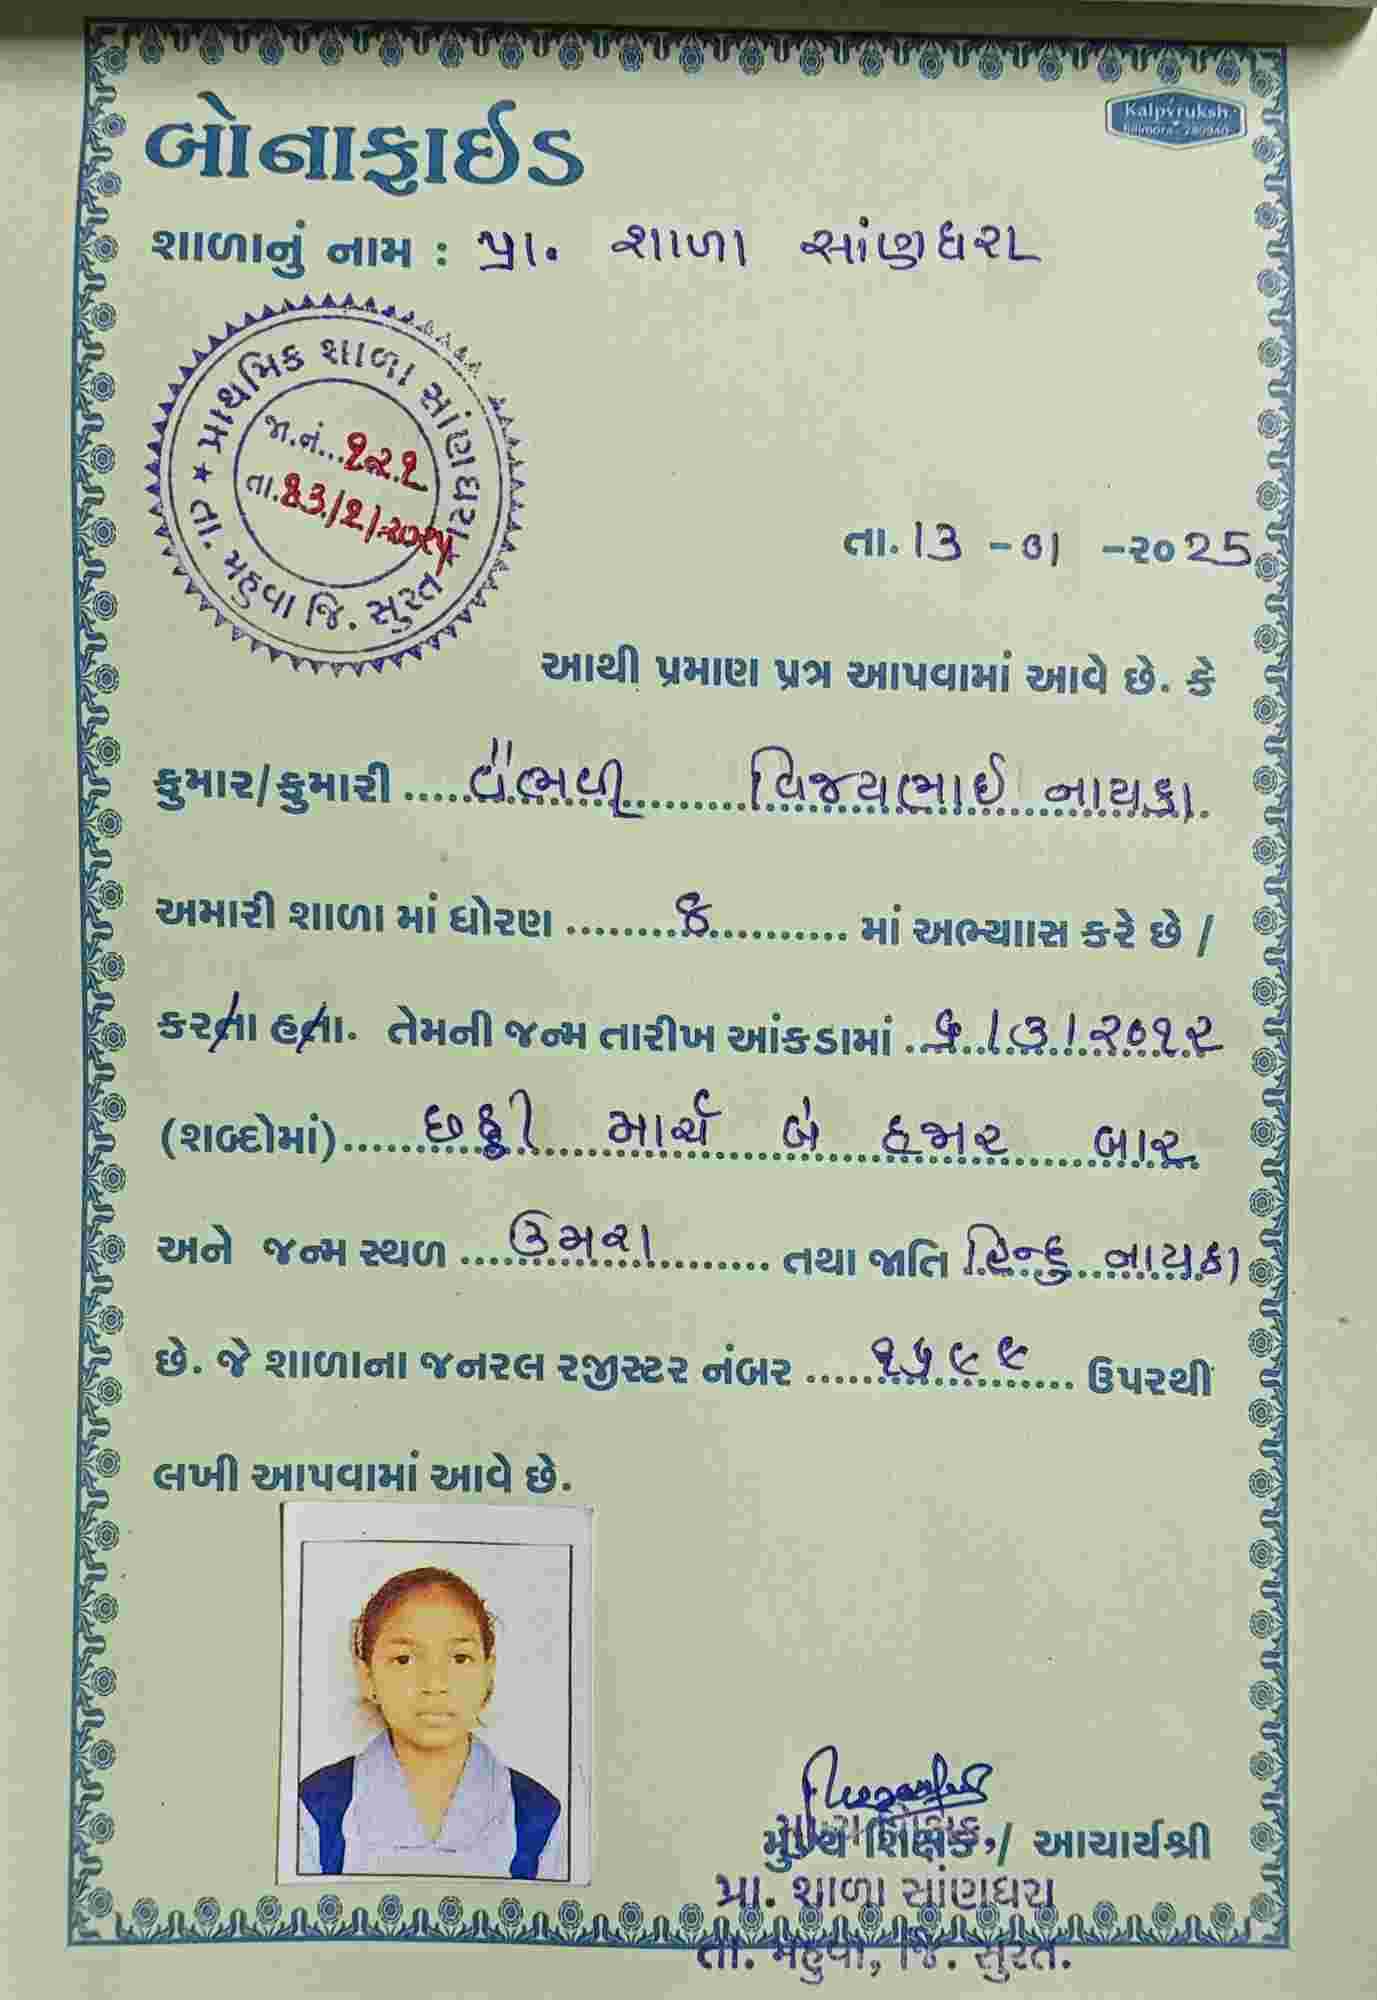 બોનાફાઈડ
Kalpvruksh
શાળાનું નામ : પ્રા. શાળા સાંણધરા
પ્રાથમિક શાળા સાંણધરા
જા.નં...૧૨૧
તા.૧૩/૧/૨૦૨૫
★ તા. મહુવા જિ. સુરત ★
તા. 13 - 01 -૨૦25
આથી પ્રમાણ પત્ર આપવામાં આવે છે. કે
કુમાર/કુમારી ..... વૈભવી વિજયભાઈ નાયકા.
અમારી શાળા માં ધોરણ ........ ૭ .......... માં અભ્યાસ કરે છે /
કરતા હતા. તેમની જન્મ તારીખ આંકડામાં .. ૬/૩/૨૦૧૨
(શબ્દોમાં)..... છઠ્ઠી માર્ચ બે હજાર બાર
અને જન્મ સ્થળ ... ઉમરા ....... તથા જાતિ હિન્દુ નાયકા
છે. જે શાળાના જનરલ રજીસ્ટર નંબર ..... ૧૫૯૯ ..... ઉપરથી
લખી આપવામાં આવે છે.
મુખ્ય શિક્ષક / આચાર્યશ્રી
પ્રા. શાળા સાંણધરા
તા. મહુવા, જિ. સુરત.